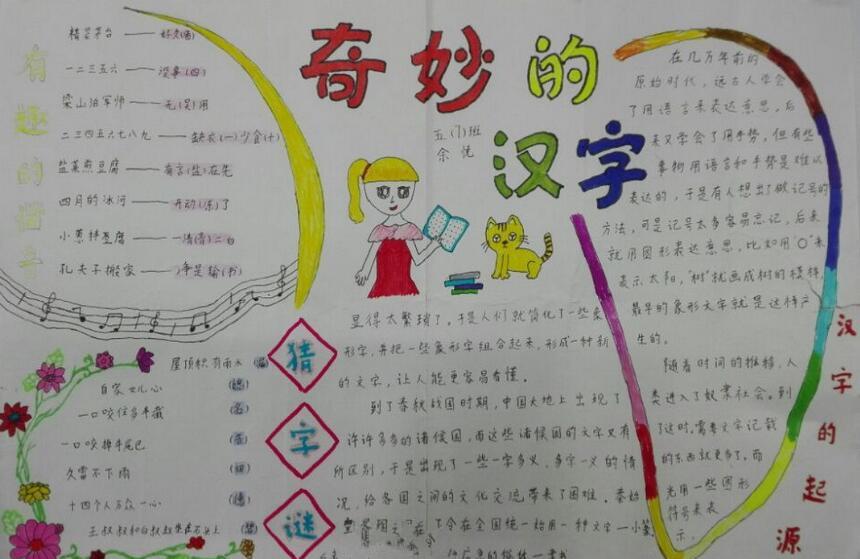 奇妙的
汉字
五(1)班
余悦
有趣的谐音
一二三五六——没事(四)
梁山泊军师——无(吴)用
二三四五六七八九——缺衣(一)少食(十)
盐煮煎豆腐——有言(盐)在先
四月的冰河——开动(冻)了
小葱拌豆腐——一清(青)二白
孔夫子搬家——净是输(书)
猜字谜
屋顶积有雨水
自家女儿心
一口咬住多半截
一口咬掉牛尾巴
久雷不下雨
十四个人万众一心
王叔叔和白叔叔坐在石头上
汉字的起源
在几万年前的
原始时代，远古人学会
了用语言来表达意思，后
来又学会了用手势，但有些
事物用语言和手势是难以
表达的，于是有人想出了做记号的
方法，可是记号太多容易忘记，后来
就用图形表达意思，比如用“O”来
表示太阳，“树”就画成树的模样，
最早的象形文字就是这样产
生的。
随着时间的推移，人
类进入了奴隶社会。到
了这时，需要文字记载
的东西就更多了。而
光用一些图形
符号来表
示，
显得太繁琐了。于是人们就简化了一些象
形字，并把一些象形字组合起来，形成一种新
的文字，让人能更容易看懂。
到了春秋战国时期，中国大地上出现了
许许多多的诸侯国，而这些诸侯国的文字又有
所区别，于是出现了一些一字多义，多字一义的情
况，给各国之间的文化交流带来了困难。秦始
了令在全国统一始用一种文字—小篆